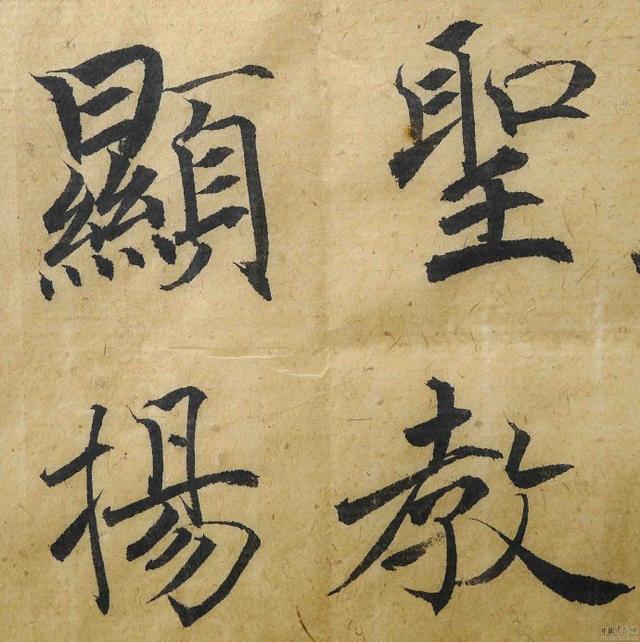 聖教
顯揚